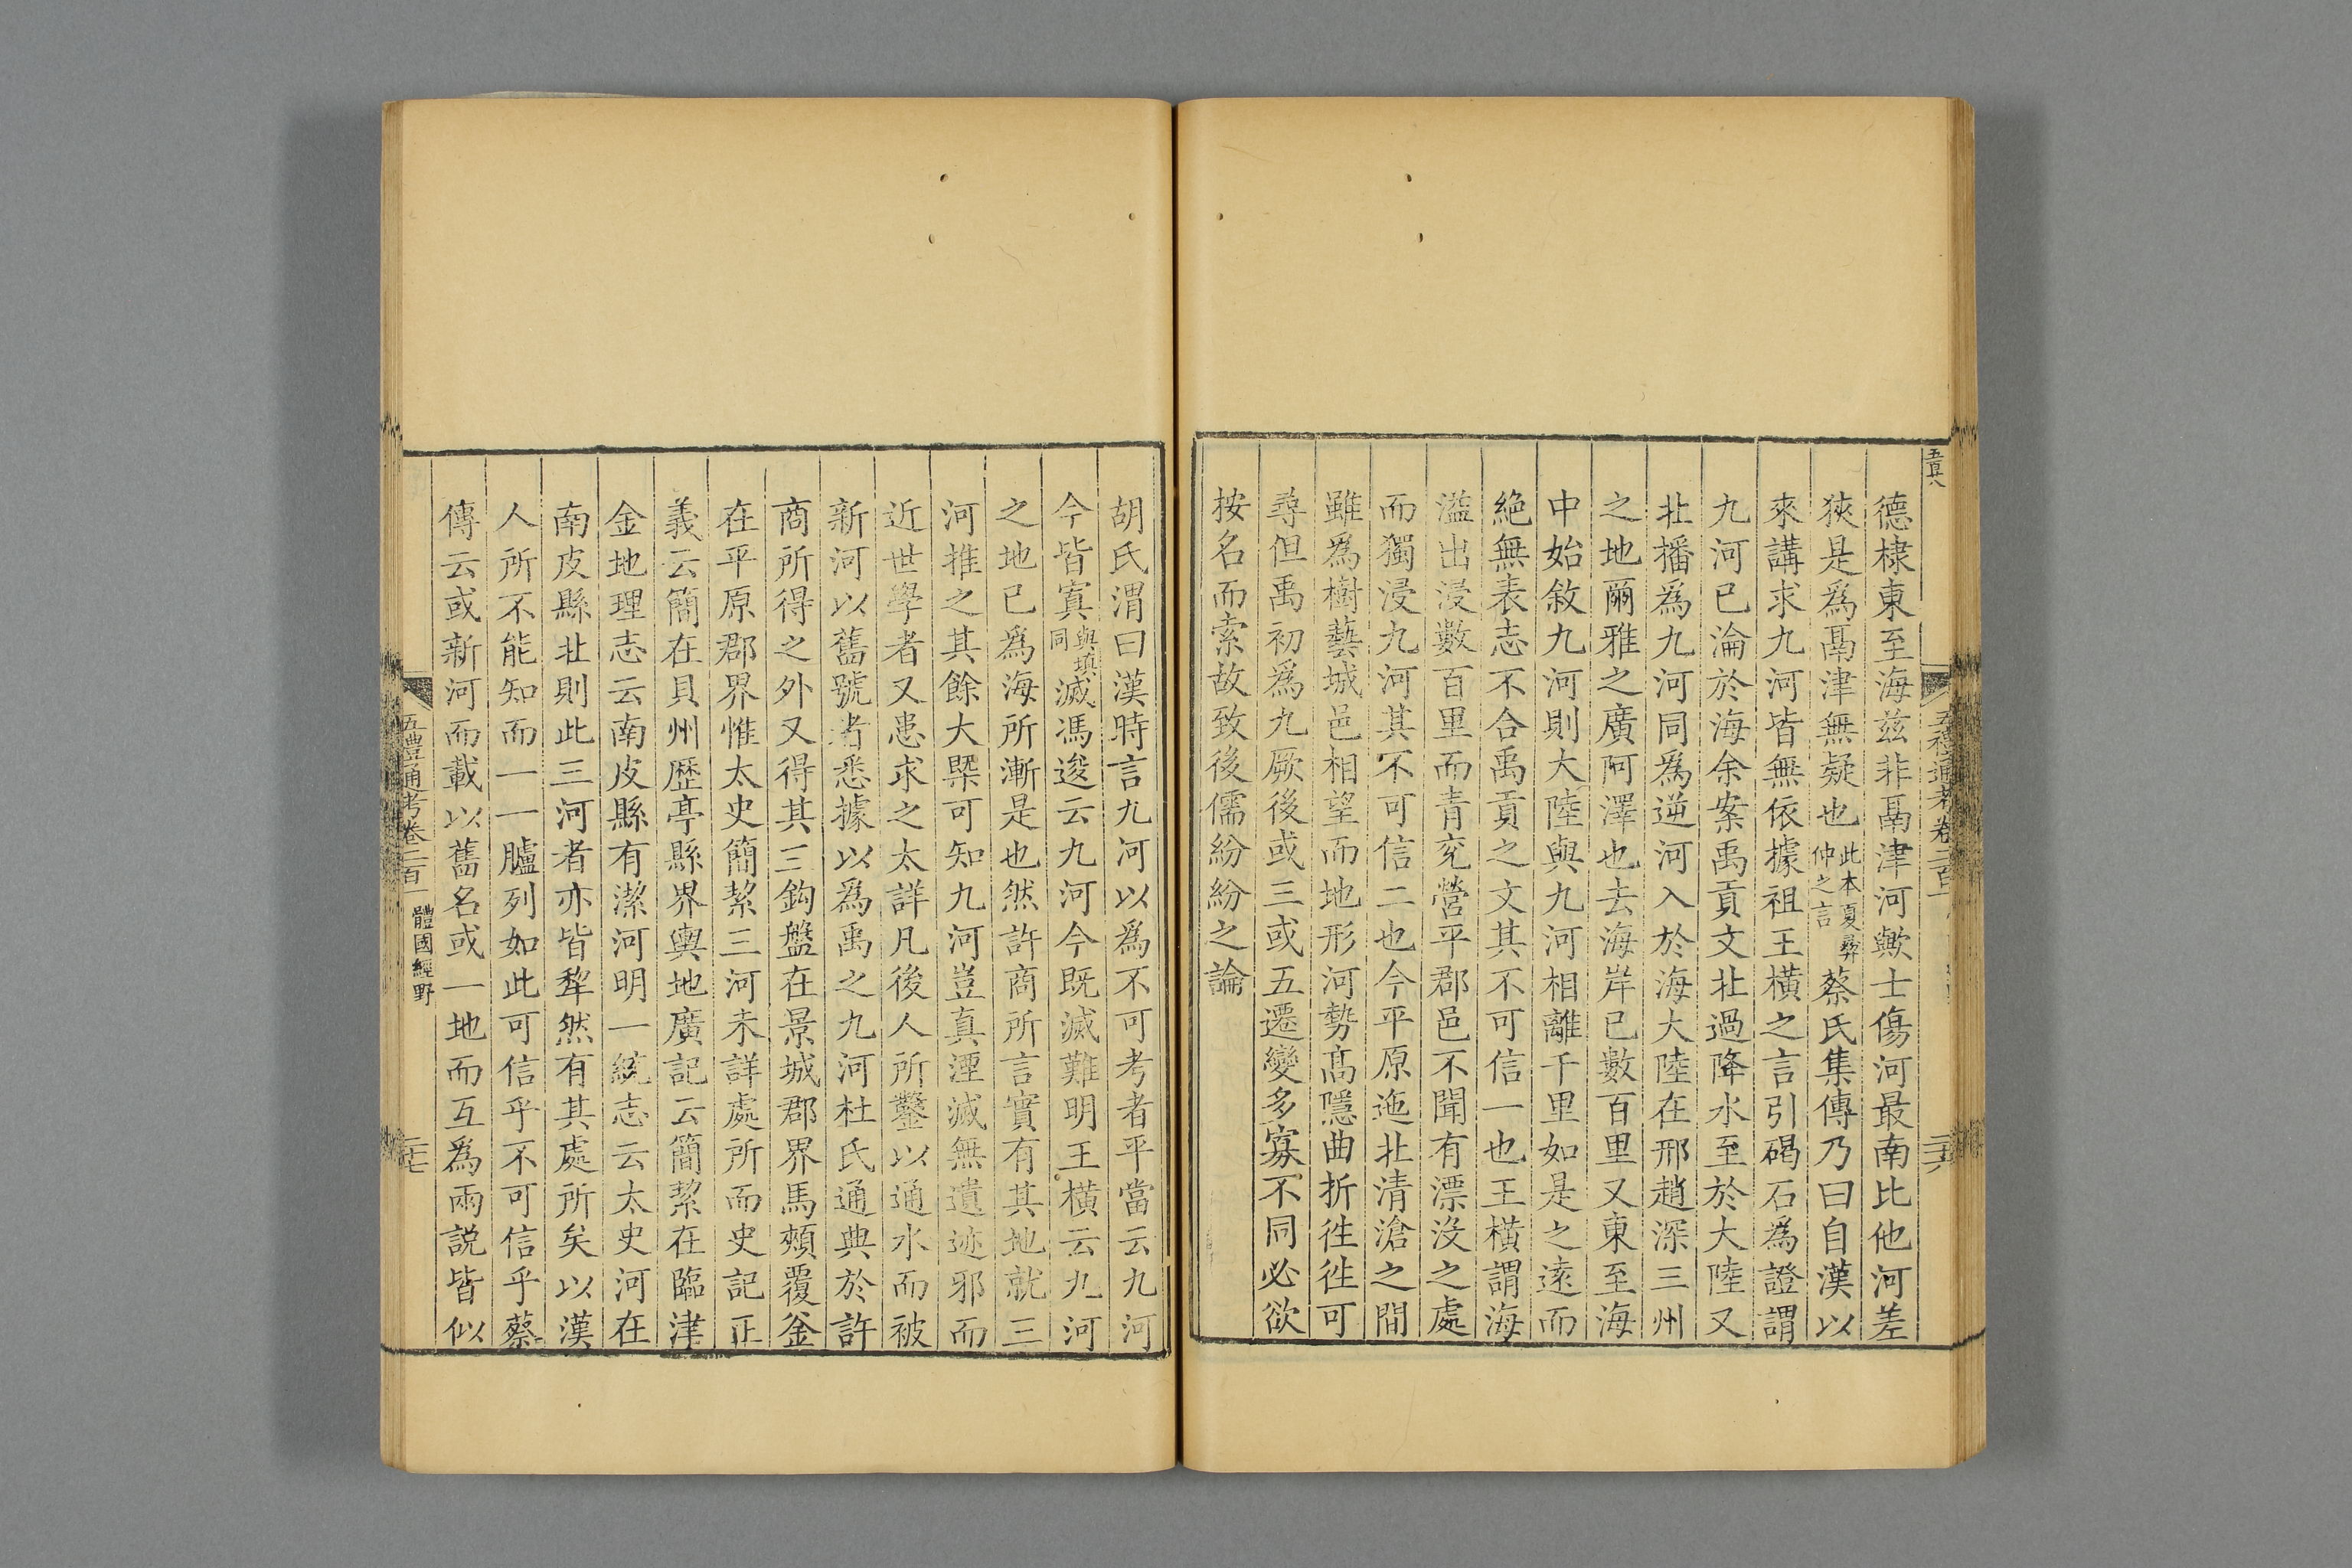 德棣東至海兹非鬲津河歟士傷河最南比他河差
狹是爲鬲津無疑也此本夏彛仲之言蔡氏集傳乃曰自漢以
來講求九河皆無依據祖王橫之言引碣石爲證謂
九河已淪於海余案禹貢文北過降水至於大陸又
北播爲九河同爲逆河入於海大陸在邢趙深三州
之地爾雅之廣阿澤也去海岸已數百里又東至海
中始敘九河則大陸與九河相離千里如是之遠而
絶無表志不合禹貢之文其不可信一也王橫謂海
溢出浸數百里而青兖營平郡邑不聞有漂没之處
而獨浸九河其不可信二也今平原迤北清滄之間
雖爲樹藝城邑相望而地形河勢髙隱曲折徃徃可
尋但禹初爲九厥後或三或五遷變多寡不同必欲
按名而索故致後儒紛紛之論
胡氏渭曰漢時言九河以爲不可考者平當云九河
今皆寘與填同滅馮逡云九河今既滅難明王橫云九河
之地已爲海所漸是也然許商所言實有其地就三
河推之其餘大槩可知九河豈真湮滅無遺迹邪而
近世學者又患求之太詳凡後人所鑿以通水而被
新河以舊號者悉據以爲禹之九河杜氏通典於許
商所得之外又得其三鉤盤在景城郡界馬頰覆釜
在平原郡界惟太史簡絜三河未詳處所而史記正
義云簡在貝州歴亭縣界輿地廣記云簡絜在臨津
金地理志云南皮縣有潔河明一統志云太史河在
南皮縣北則此三河者亦皆犂然有其處所矣以漢
人所不能知而一一臚列如此可信乎不可信乎蔡
傳云或新河而載以舊名或一地而互爲兩説皆似
五禮通考卷二百一 體國經野
二十七